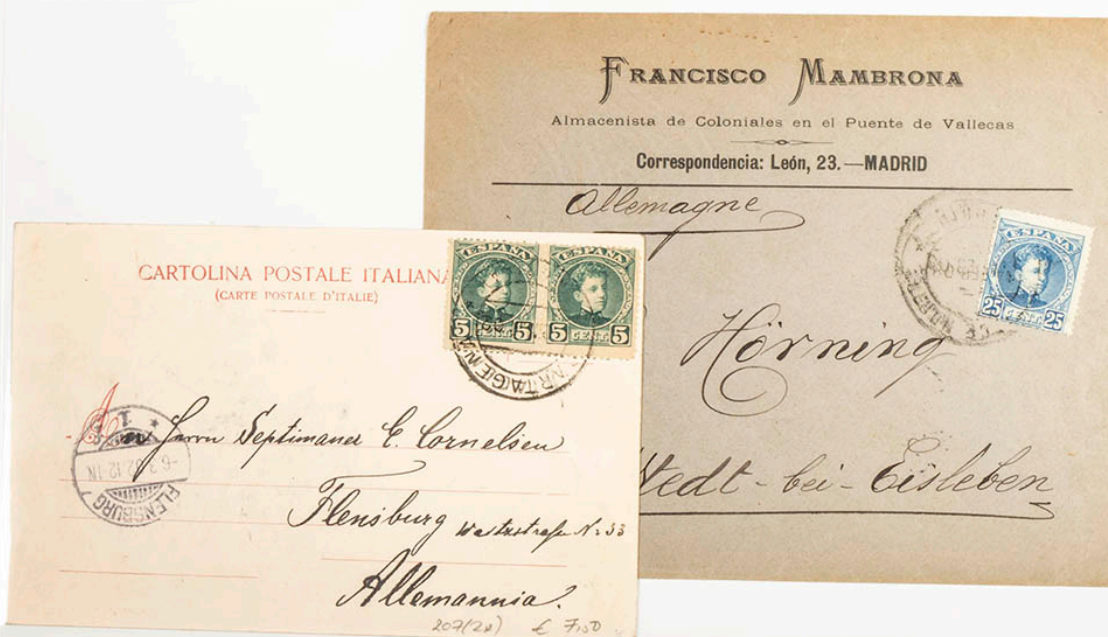 FRANCISCO MAMBRONA
Almacenista de Coloniales en el Puente de Vallecas
Correspondencia: León, 23.—MADRID
Allemagne
ESPAÑA
25 25
Hörning
stedt - bei - Eisleben
CARTOLINA POSTALE ITALIANA
(CARTE POSTALE D'ITALIE)
ESPAÑA ESPAÑA
5 5 5 5
CARTAGENA
Herrn Septimaner C. Cornelsen
FLENSBURG
* 1
-6.3.02.12-1N
Flensburg
N: 33
Allemannia.
207(2x) € 7,50